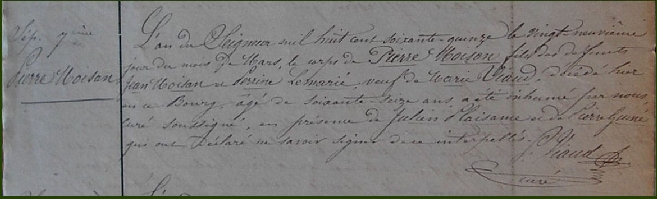 Sép. g
Pierre Moison
L'an du Seigneur mil huit cent soixante-quinze le vingt neuvième
jour du mois de Mars, le corps de Pierre Moison, fils des défunts
Jean Moison et Perrine Lemarié, veuf de Marie Piaud, décédé hier
en ce Bourg, âgé de soixante seize ans, a été inhumé par nous,
curé soussigné, en présence de Julien Plaisame et de Pierre
qui ont déclaré ne savoir signer de ce interpellés.
Piaud
curé
L'an